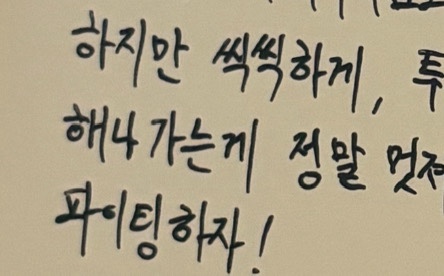 하지만 씩씩하게, 투
해나가는게 정말 멋져
파이팅하자!